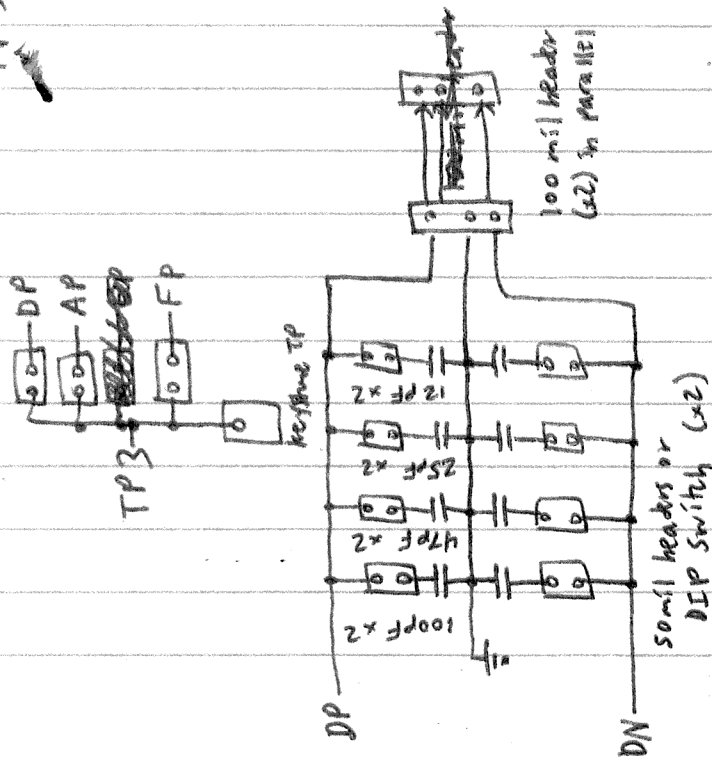 DP
AP
FP
TP3
Keystone TP
100 mil header
(x2) in parallel
12pF x2
25pF x2
47pF x2
100pF x2
DP
DN
50mil headers or
DIP switch (x2)